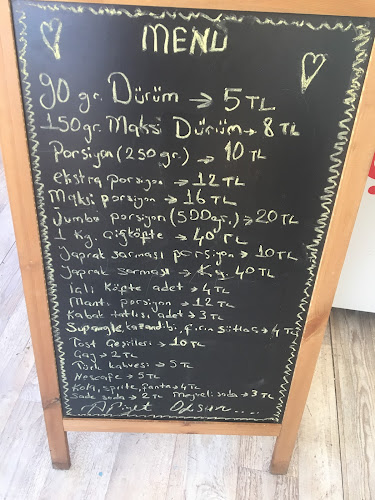 MENU
90 gr. Dürüm → 5 TL
150 gr. Maksi Dürüm → 8 TL
Porsiyon (250 gr.) → 10 TL
ekstra porsiyon → 12 TL
Maksi porsiyon → 16 TL
Jumbo porsiyon (500 gr.) → 20 TL
1 Kg. Çiğköfte → 40 TL
Yaprak sarması porsiyon → 10 TL
Yaprak sarması → Kg. 40 TL
İçli Köfte adet → 4 TL
Mantı porsiyon → 12 TL
Kabak tatlısı adet → 3 TL
Supangle, kazandibi, fırın sütlaç → 4 TL
Tost Çeşitleri → 10 TL
Çay → 2 TL
Türk kahvesi → 5 TL
Nescafe → 5 TL
Kola, sprite, fanta → 4 TL
Sade soda → 2 TL Meyveli soda → 3 TL
Afiyet Olsun....